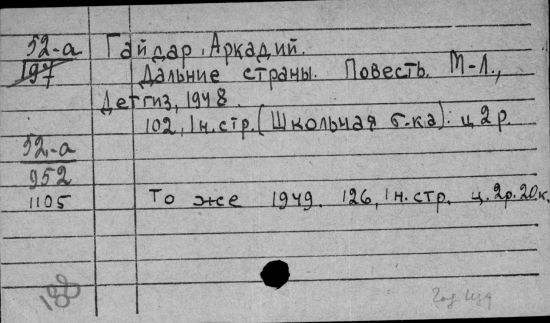 52-а Гайдар, Аркадий.
197 Дальние страны. Повесть. М-Л.,
Детгиз, 1948.
102, 1 н.стр. (Школьная б-ка). ц. 2 р.
52-а
952
1105 То же 1949. 126, 1 н.стр. ц. 2р.20к.
Год изд